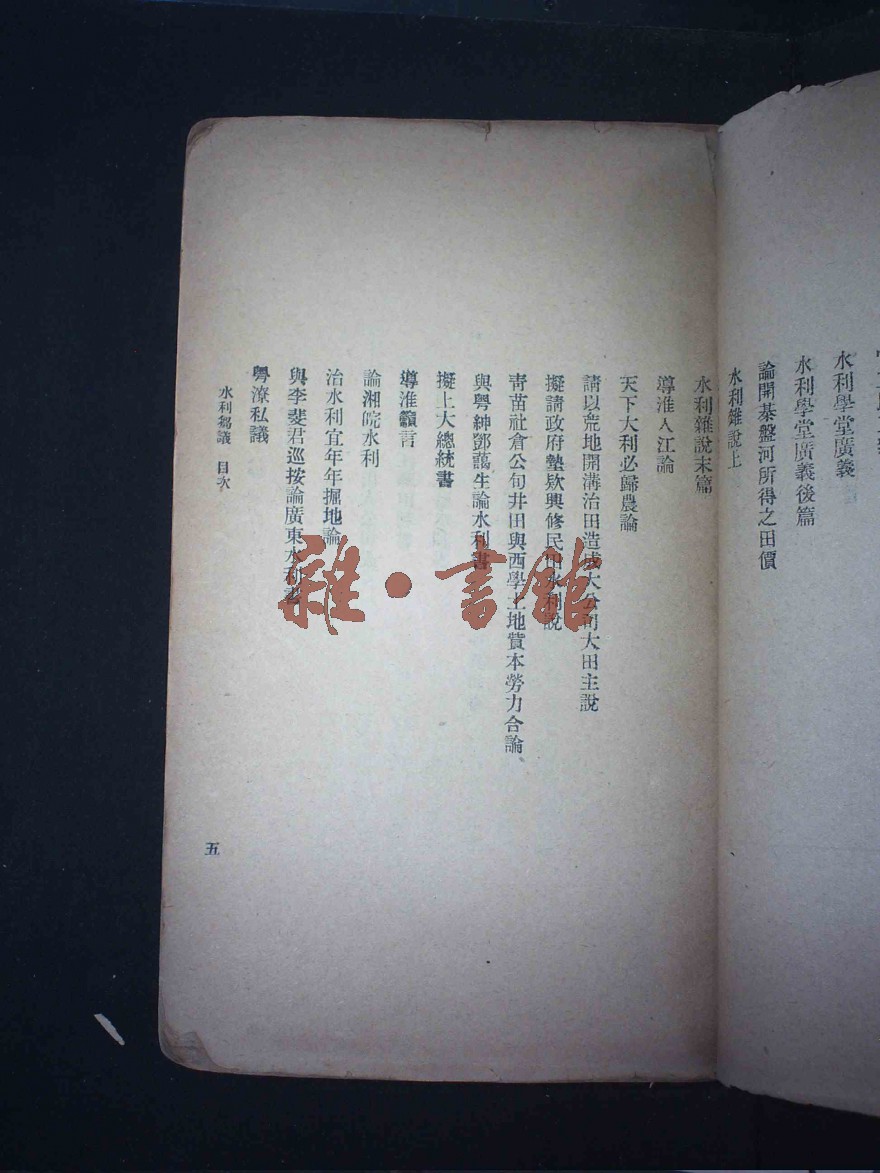 水利學堂廣義
水利學堂廣義後篇
論開碁盤河所得之田價
水利雜說上
水利雜說末篇
導淮入江論
天下大利必歸農論
請以荒地開溝治田造成大公司大田主說
擬請政府墊欵興修民田水利說
靑苗社倉公旬井田與西學土地資本勞力合論
與粵紳鄧藹生論水利書
擬上大總統書
導淮囈言
論湘皖水利
治水利宜年年掘地論
與李斐君巡按論廣東水利書
粵潦私議
水利芻議 目次
五
雜·書館